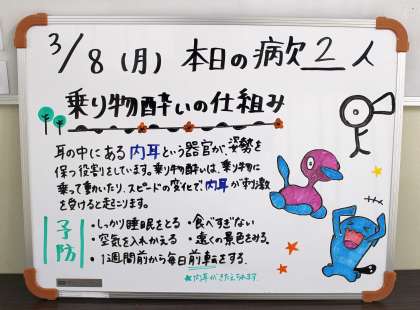 3/8(月) 本日の病欠 2 人
乗り物酔いの仕組み
耳の中にある内耳という器官が、姿勢を
保つ役割をしています。乗り物酔いは、乗り物に
乗って動いたり、スピードの変化で、内耳が刺激
を受けると起こります。
予防
・しっかり睡眠をとる ・食べすぎない
・空気を入れかえる ・遠くの景色をみる。
・1週間前から毎日前転をする。
★内耳がきたえられます。